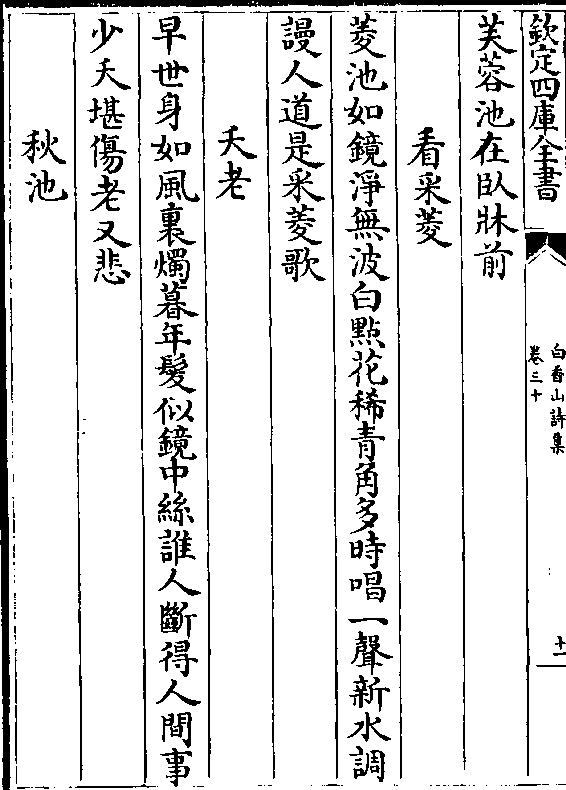 欽定四庫全書
白香山詩集
卷三十
十一
芙蓉池在臥牀前
看采菱
菱池如鏡淨無波白點花稀青角多時唱一聲新水調
謾人道是采菱歌
夭老
早世身如風裏燭暮年髮似鏡中絲誰人斷得人間事
少夭堪傷老又悲
秋池